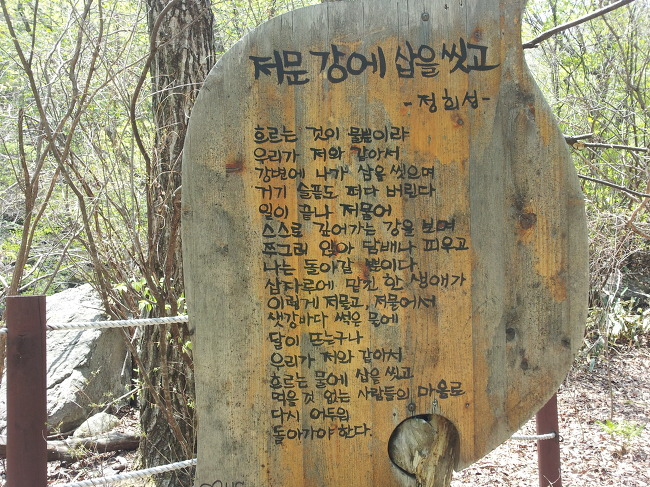 저문 강에 삽을 씻고
-정희성-
흐르는 것이 물뿐이랴
우리가 저와 같아서
강변에 나가 삽을 씻으며
거기 슬픔도 퍼다 버린다
일이 끝나 저물어
스스로 깊어가는 강을 보며
쭈그려 앉아 담배나 피우고
나는 돌아갈 뿐이다
삽자루에 맡긴 한 생애가
이렇게 저물고, 저물어서
샛강바닥 썩은 물에
달이 뜨는구나
우리가 저와 같아서
흐르는 물에 삽을 씻고
먹을 것 없는 사람들의 마을로
다시 어두워
돌아가야 한다.